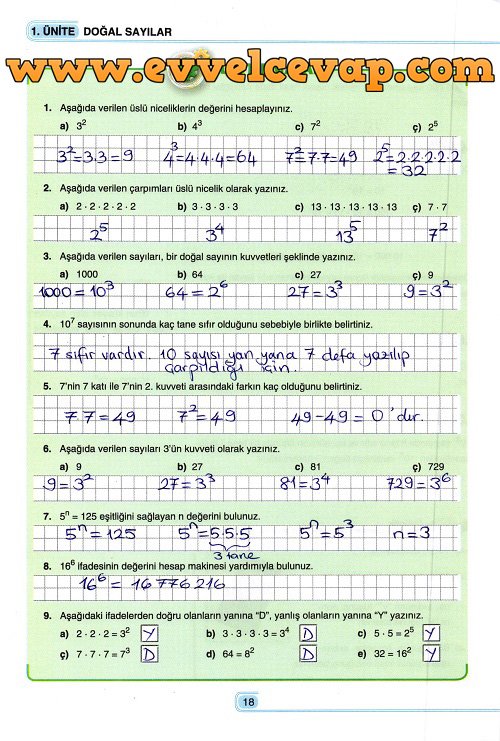 1. ÜNİTE DOĞAL SAYILAR
www.evvelcevap.com
1. Aşağıda verilen üslü niceliklerin değerini hesaplayınız.
a) 3² b) 4³ c) 7² ç) 2⁵
3²=3.3=9 4³=4.4.4=64 7²=7.7=49 2⁵=2.2.2.2.2
=32
2. Aşağıda verilen çarpımları üslü nicelik olarak yazınız.
a) 2 · 2 · 2 · 2 · 2 b) 3 · 3 · 3 · 3 c) 13 · 13 · 13 · 13 · 13 ç) 7 · 7
2⁵ 3⁴ 13⁵ 7²
3. Aşağıda verilen sayıları, bir doğal sayının kuvvetleri şeklinde yazınız.
a) 1000 b) 64 c) 27 ç) 9
1000=10³ 64=2⁶ 27=3³ 9=3²
4. 10⁷ sayısının sonunda kaç tane sıfır olduğunu sebebiyle birlikte belirtiniz.
7 sıfır vardır. 10 sayısı yan yana 7 defa yazılıp
çarpıldığı için.
5. 7'nin 7 katı ile 7'nin 2. kuvveti arasındaki farkın kaç olduğunu belirtiniz.
7.7=49 7²=49 49-49=0'dır.
6. Aşağıda verilen sayıları 3'ün kuvveti olarak yazınız.
a) 9 b) 27 c) 81 ç) 729
9=3² 27=3³ 81=3⁴ 729=3⁶
7. 5ⁿ = 125 eşitliğini sağlayan n değerini bulunuz.
5ⁿ=125 5ⁿ=5.5.5 5ⁿ=5³ n=3
3 tane
8. 16⁶ ifadesinin değerini hesap makinesi yardımıyla bulunuz.
16⁶ = 16776216
9. Aşağıdaki ifadelerden doğru olanların yanına "D", yanlış olanların yanına "Y" yazınız.
a) 2 · 2 · 2 = 3² Y b) 3 · 3 · 3 · 3 = 3⁴ D c) 5 · 5 = 2⁵ Y
ç) 7 · 7 · 7 = 7³ D d) 64 = 8² D e) 32 = 16² Y
18